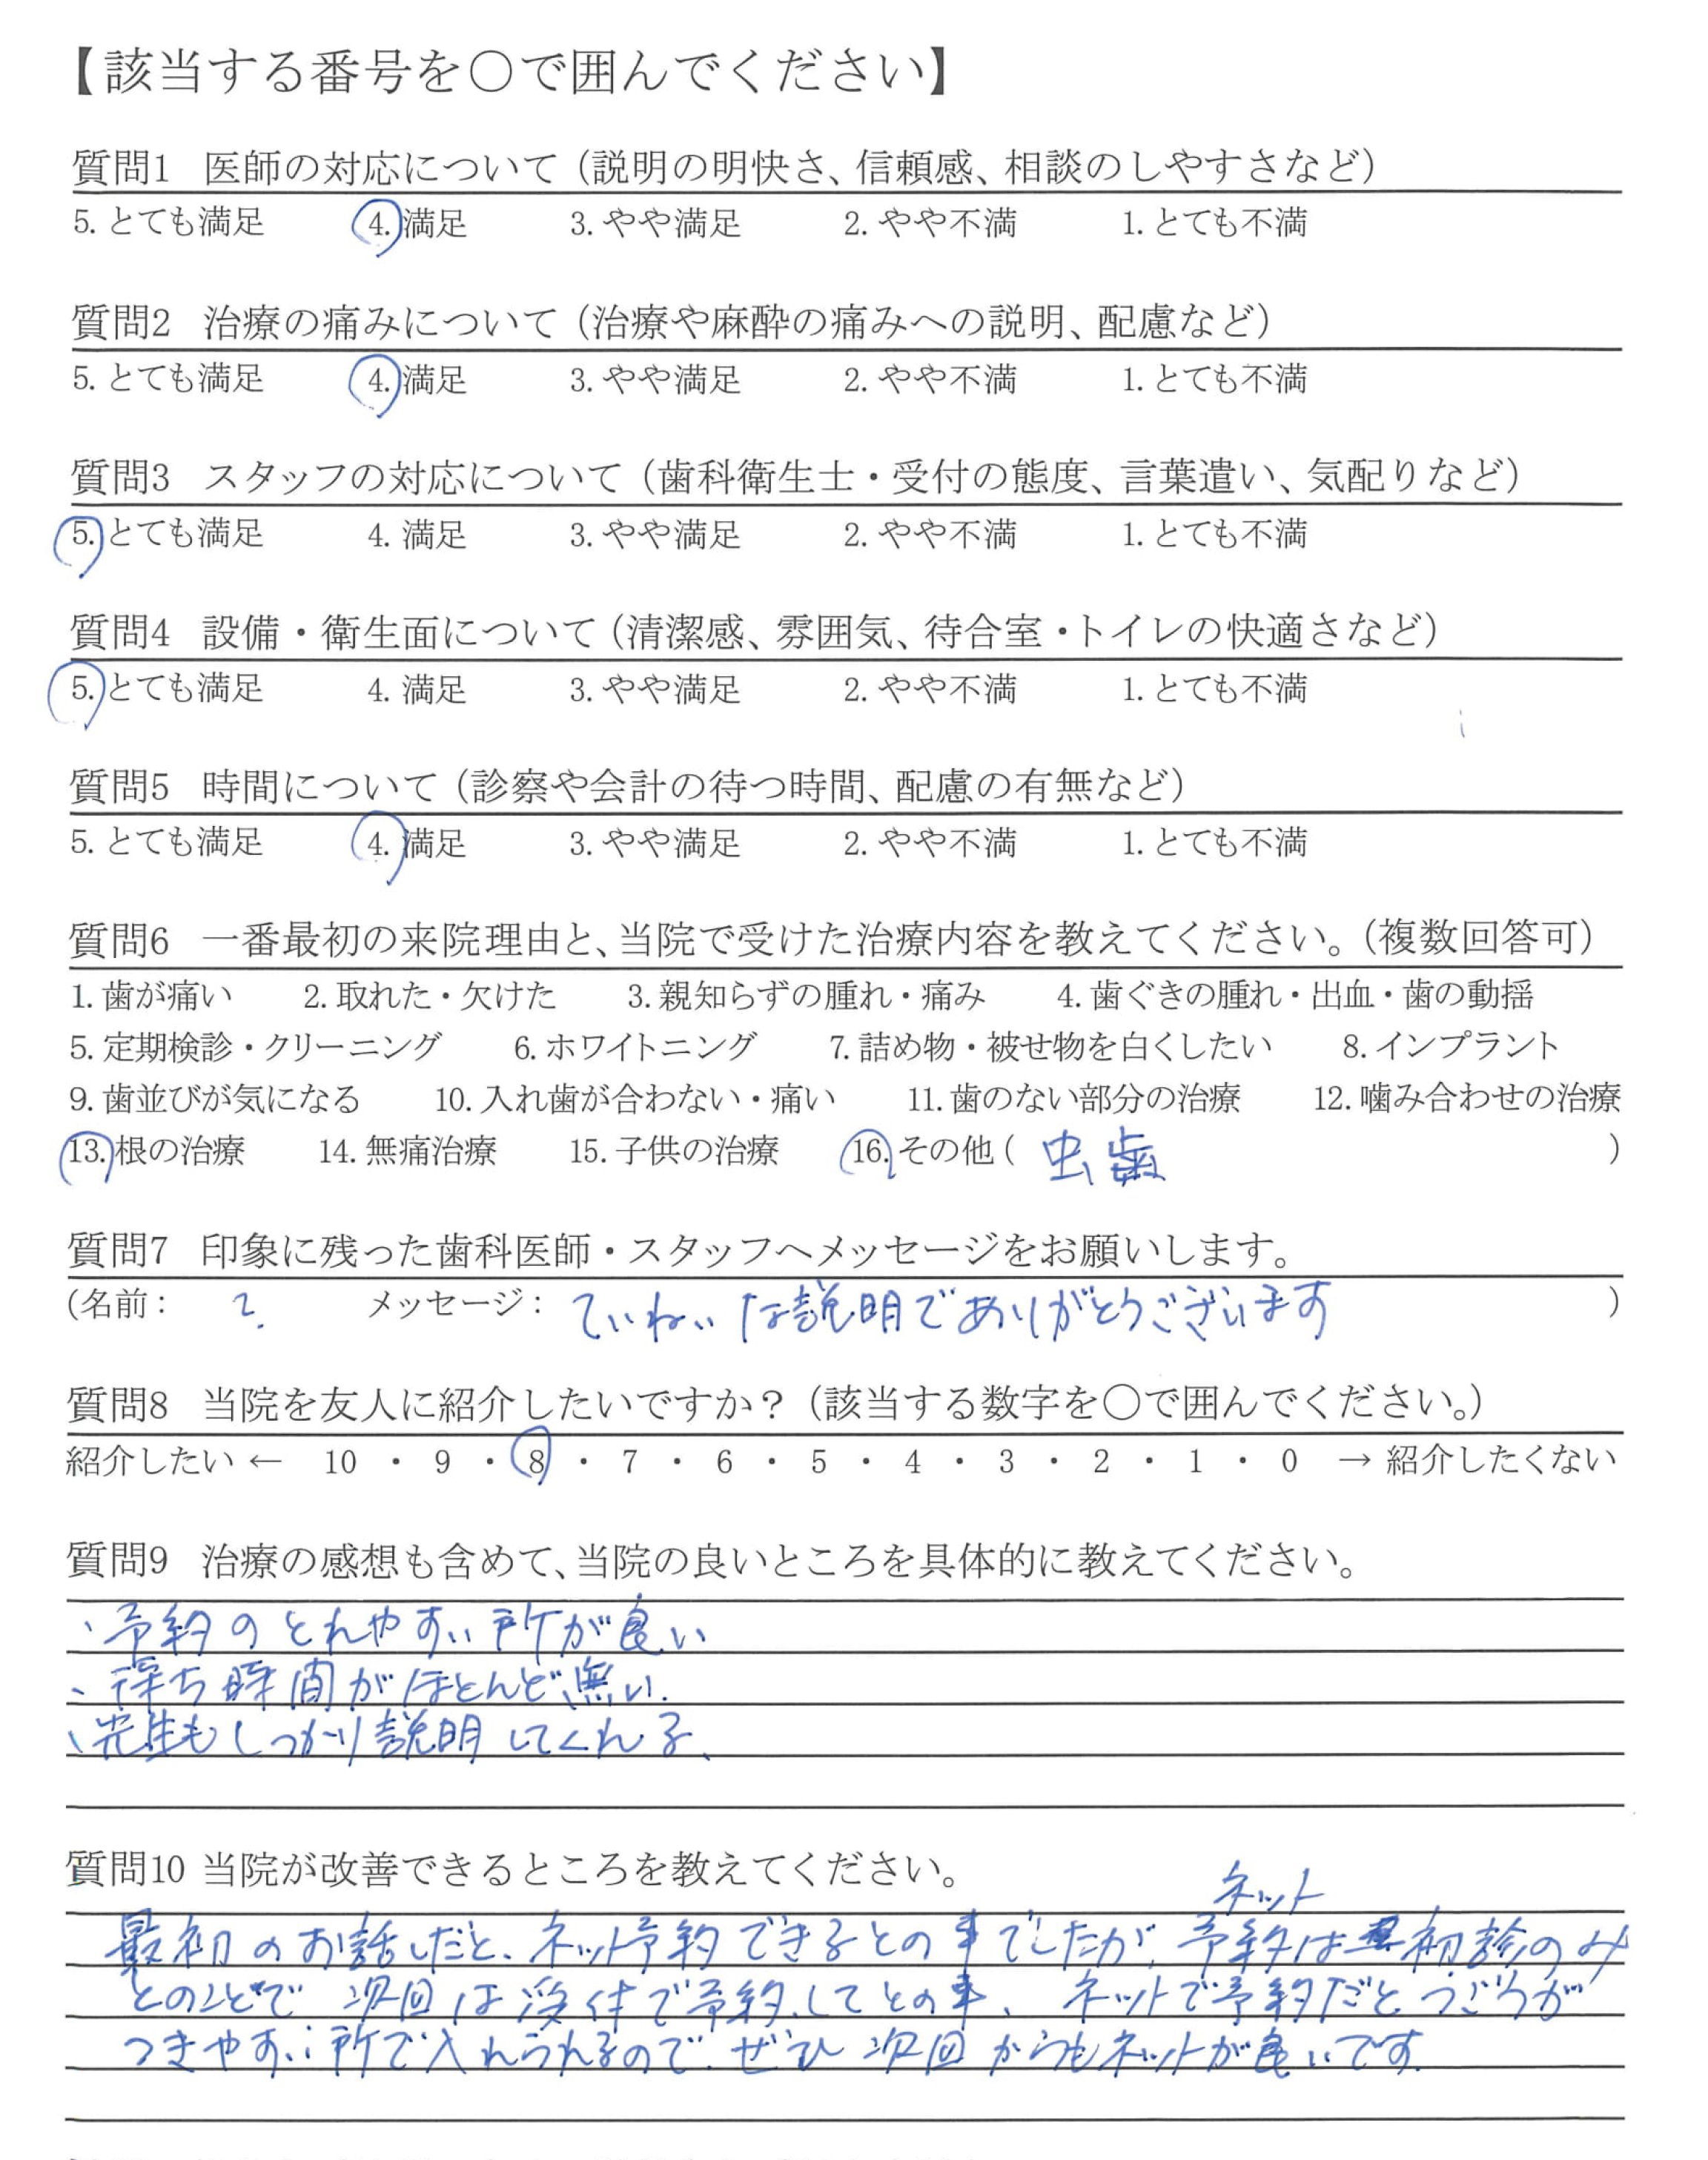 【該当する番号を〇で囲んでください】
質問1 医師の対応について（説明の明快さ、信頼感、相談のしやすさなど）
5. とても満足 4. 満足 3. やや満足 2. やや不満 1. とても不満
質問2 治療の痛みについて（治療や麻酔の痛みへの説明、配慮など）
5. とても満足 4. 満足 3. やや満足 2. やや不満 1. とても不満
質問3 スタッフの対応について（歯科衛生士・受付の態度、言葉遣い、気配りなど）
5. とても満足 4. 満足 3. やや満足 2. やや不満 1. とても不満
質問4 設備・衛生面について（清潔感、雰囲気、待合室・トイレの快適さなど）
5. とても満足 4. 満足 3. やや満足 2. やや不満 1. とても不満
質問5 時間について（診察や会計の待つ時間、配慮の有無など）
5. とても満足 4. 満足 3. やや満足 2. やや不満 1. とても不満
質問6 一番最初の来院理由と、当院で受けた治療内容を教えてください。（複数回答可）
1. 歯が痛い 2. 取れた・欠けた 3. 親知らずの腫れ・痛み 4. 歯ぐきの腫れ・出血・歯の動揺
5. 定期検診・クリーニング 6. ホワイトニング 7. 詰め物・被せ物を白くしたい 8. インプラント
9. 歯並びが気になる 10. 入れ歯が合わない・痛い 11. 歯のない部分の治療 12. 噛み合わせの治療
13. 根の治療 14. 無痛治療 15. 子供の治療 16. その他（ 虫歯 ）
質問7 印象に残った歯科医師・スタッフへメッセージをお願いします。
（名前： ? メッセージ： ていねいな説明でありがとうございます ）
質問8 当院を友人に紹介したいですか？（該当する数字を〇で囲んでください。）
紹介したい ← 10 ・ 9 ・ 8 ・ 7 ・ 6 ・ 5 ・ 4 ・ 3 ・ 2 ・ 1 ・ 0 → 紹介したくない
質問9 治療の感想も含めて、当院の良いところを具体的に教えてください。
、予約のとれやすい所が良い
、待ち時間がほとんど無い.
、先生もしっかり説明してくれる、
質問10 当院が改善できるところを教えてください。
ネット
最初のお話しだと、ネット予約できるとの事でしたが、予約は初診のみ
とのことで 次回は受付で予約してとの事、 ネットで予約だとつごうが
つきやすい所で入れられるので、ぜひ 次回からもネットが良いです.